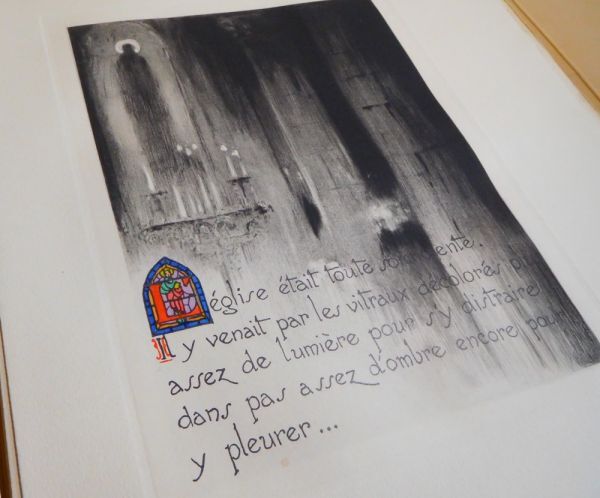 église était toute
Il y venait par les vitraux décolorés
assez de lumière pour s'y distraire
dans pas assez d'ombre encore pour
y pleurer...